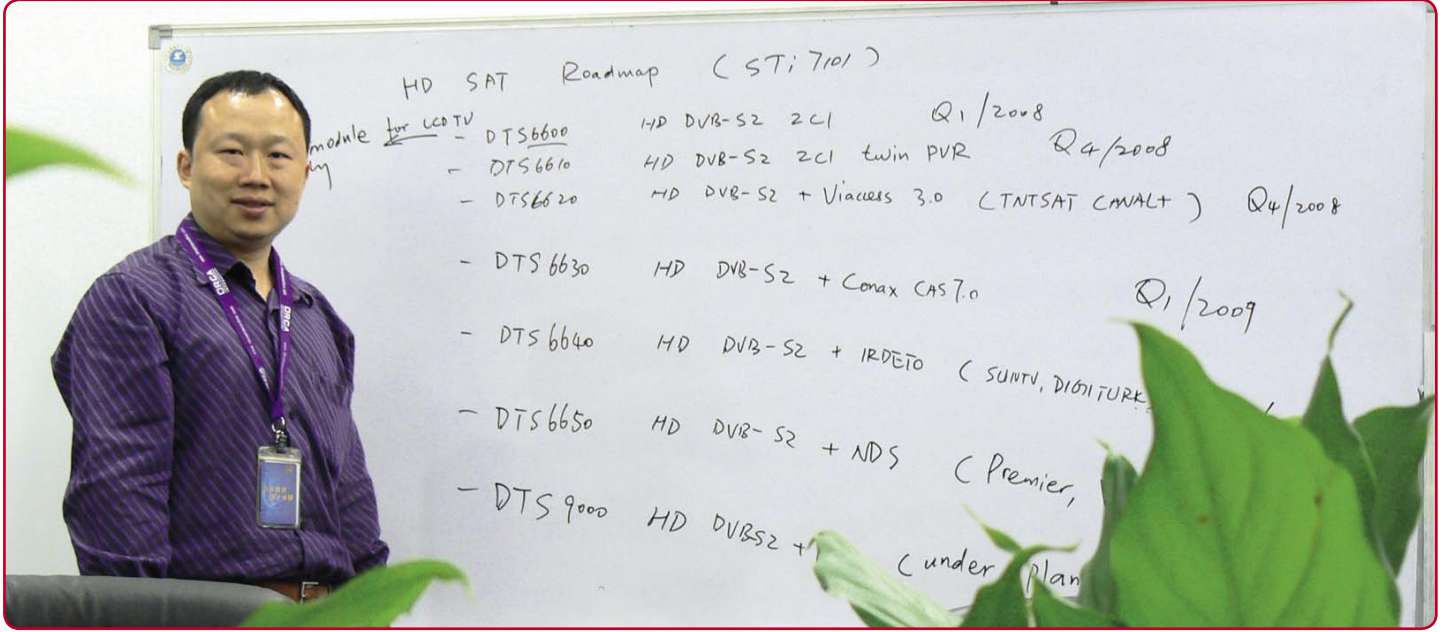 HD SAT Roadmap (STi7101)
module for LCD TV
- DTS6600 HD DVB-S2 2CI Q1/2008
- DTS6610 HD DVB-S2 2CI twin PVR Q4/2008
- DTS6620 HD DVB-S2 + Viaccess 3.0 (TNTSAT CANAL+) Q4/2008
- DTS6630 HD DVB-S2 + Conax CAS7.0 Q1/2009
- DTS6640 HD DVB-S2 + IRDETO (SUNTV, DIGITURK
- DTS6650 HD DVB-S2 + NDS (Premier,
- DTS9000 HD DVBS2 + (under plan
ORCA
ORCA